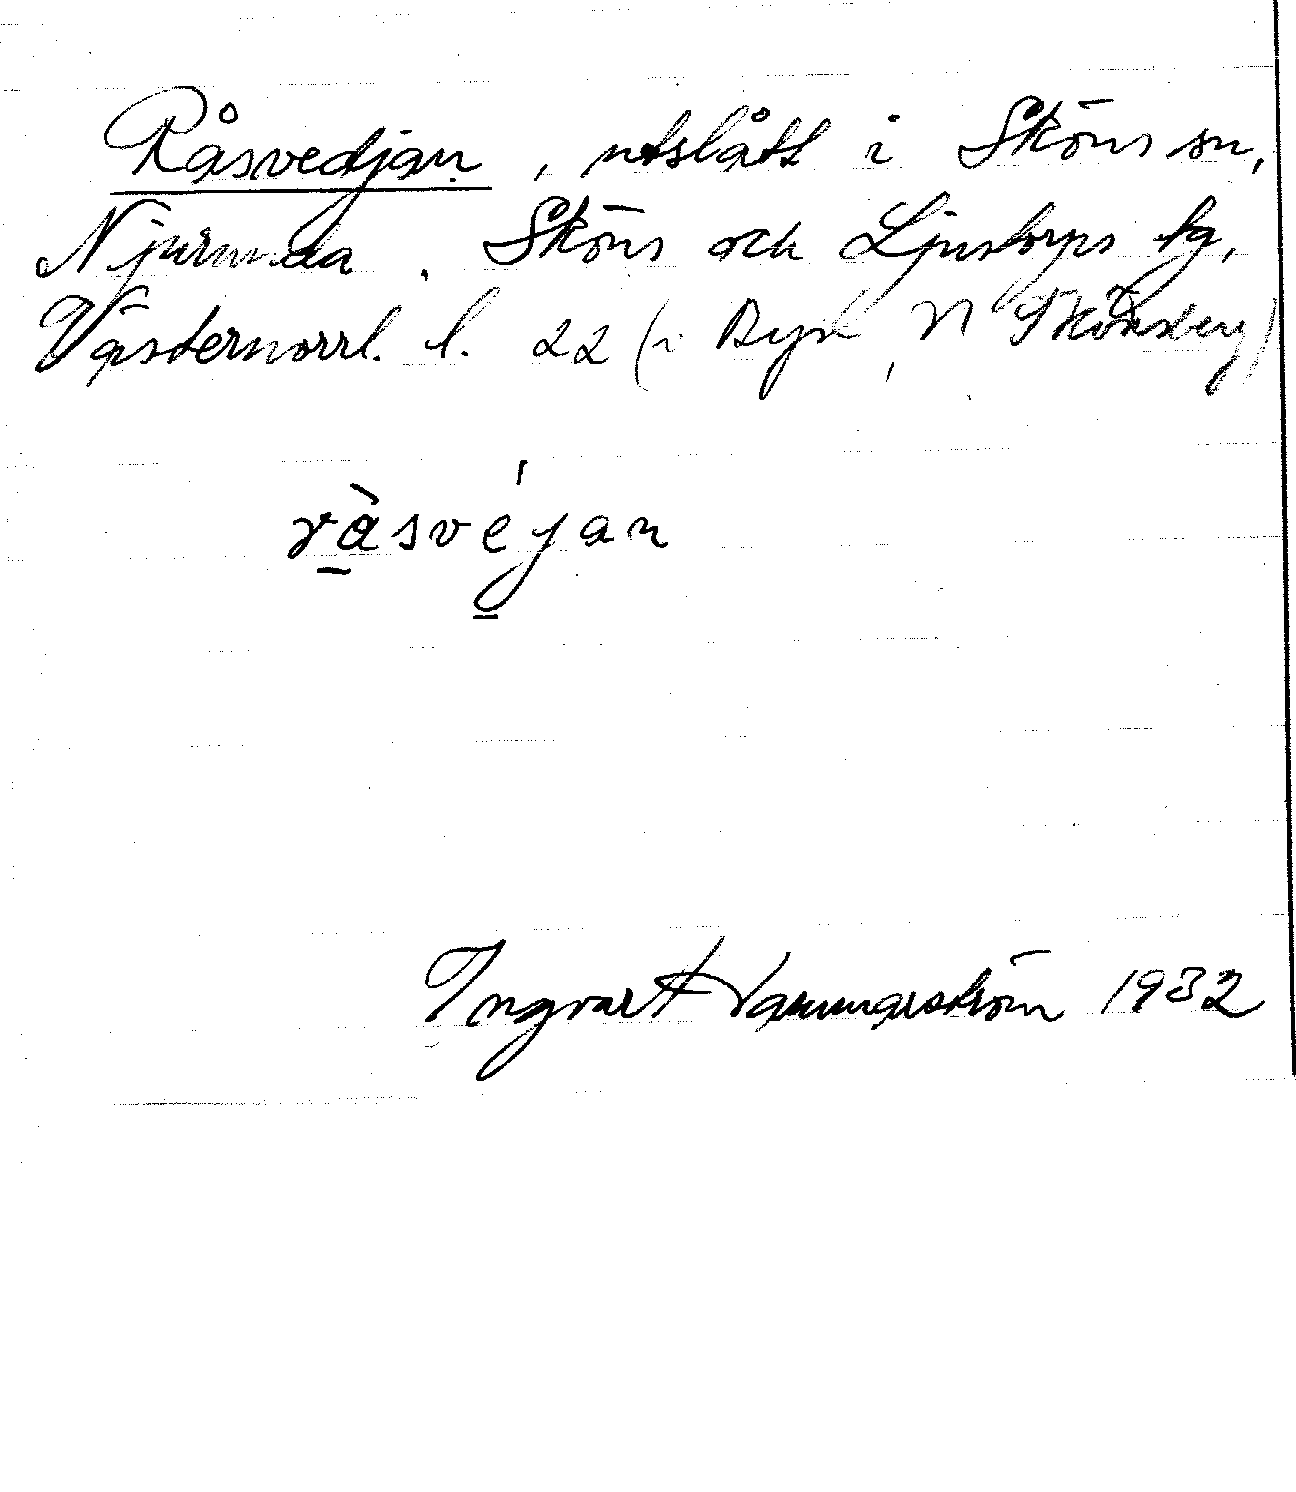 Råsvedjan, utslått i Sköns sn,
Njurunda, Sköns och Ljustorps tg,
Västernorrl. l. 22 (i Byn, N Skönsberg)
ràsvéjan
Ingvar Hammarström 1932